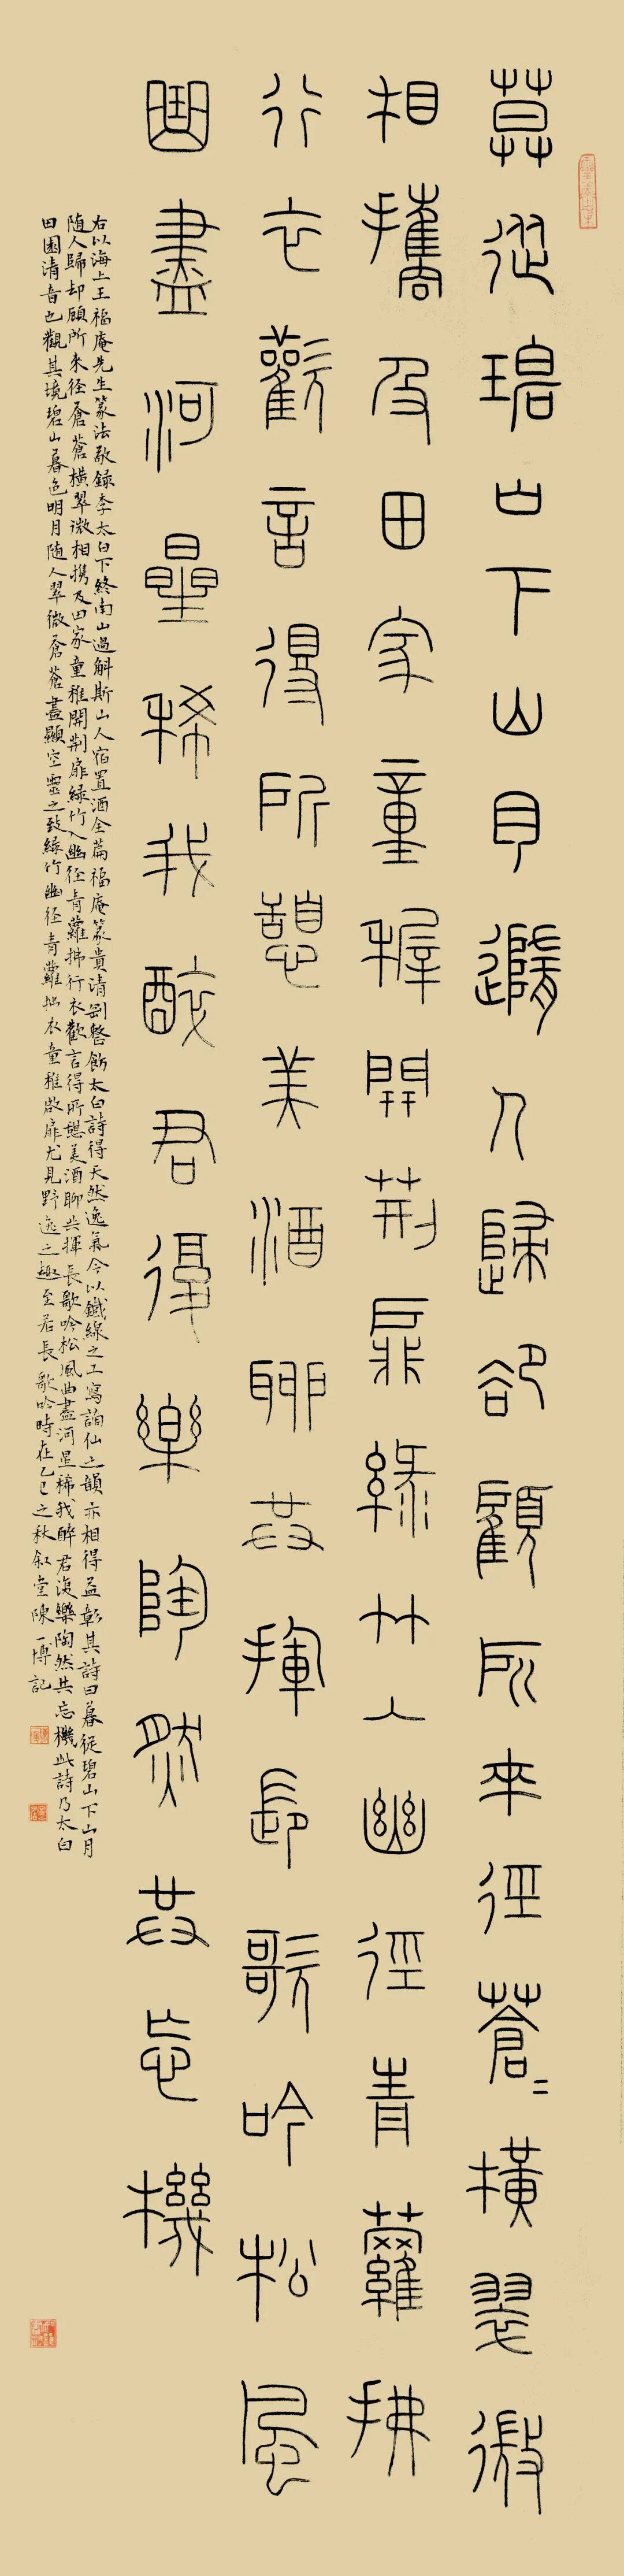 莫從碧山下山月隨人歸卻顧所來徑蒼〻橫翠微
相攜及田家童稺開荆扉綠竹入幽徑青蘿拂
行衣歡言得所憩美酒聊共揮長歌吟松風
曲盡河星稀我醉君復樂陶然共忘機
右以海上王福庵先生篆法敬録李太白下終南山過斛斯山人宿置酒全篇福庵篆貴清剛整飭太白詩得天然逸氣今以鐵線之工寫謫仙之韻亦相得益彰其詩曰暮從碧山下山月
随人歸却顧所來径蒼蒼橫翠微相携及田家童稚開荆扉緑竹入幽径青蘿拂行衣歡言得所憩美酒聊共揮長歌吟松風曲盡河星稀我醉君復樂陶然共忘機此詩乃太白
田園清音也觀其境碧山暮色明月随人翠微蒼蒼盡顯空靈之致緑竹幽径青蘿拂衣童稚啟扉尤見野逸之趣至若長歌吟時在乙巳之秋叙堂陳一博記